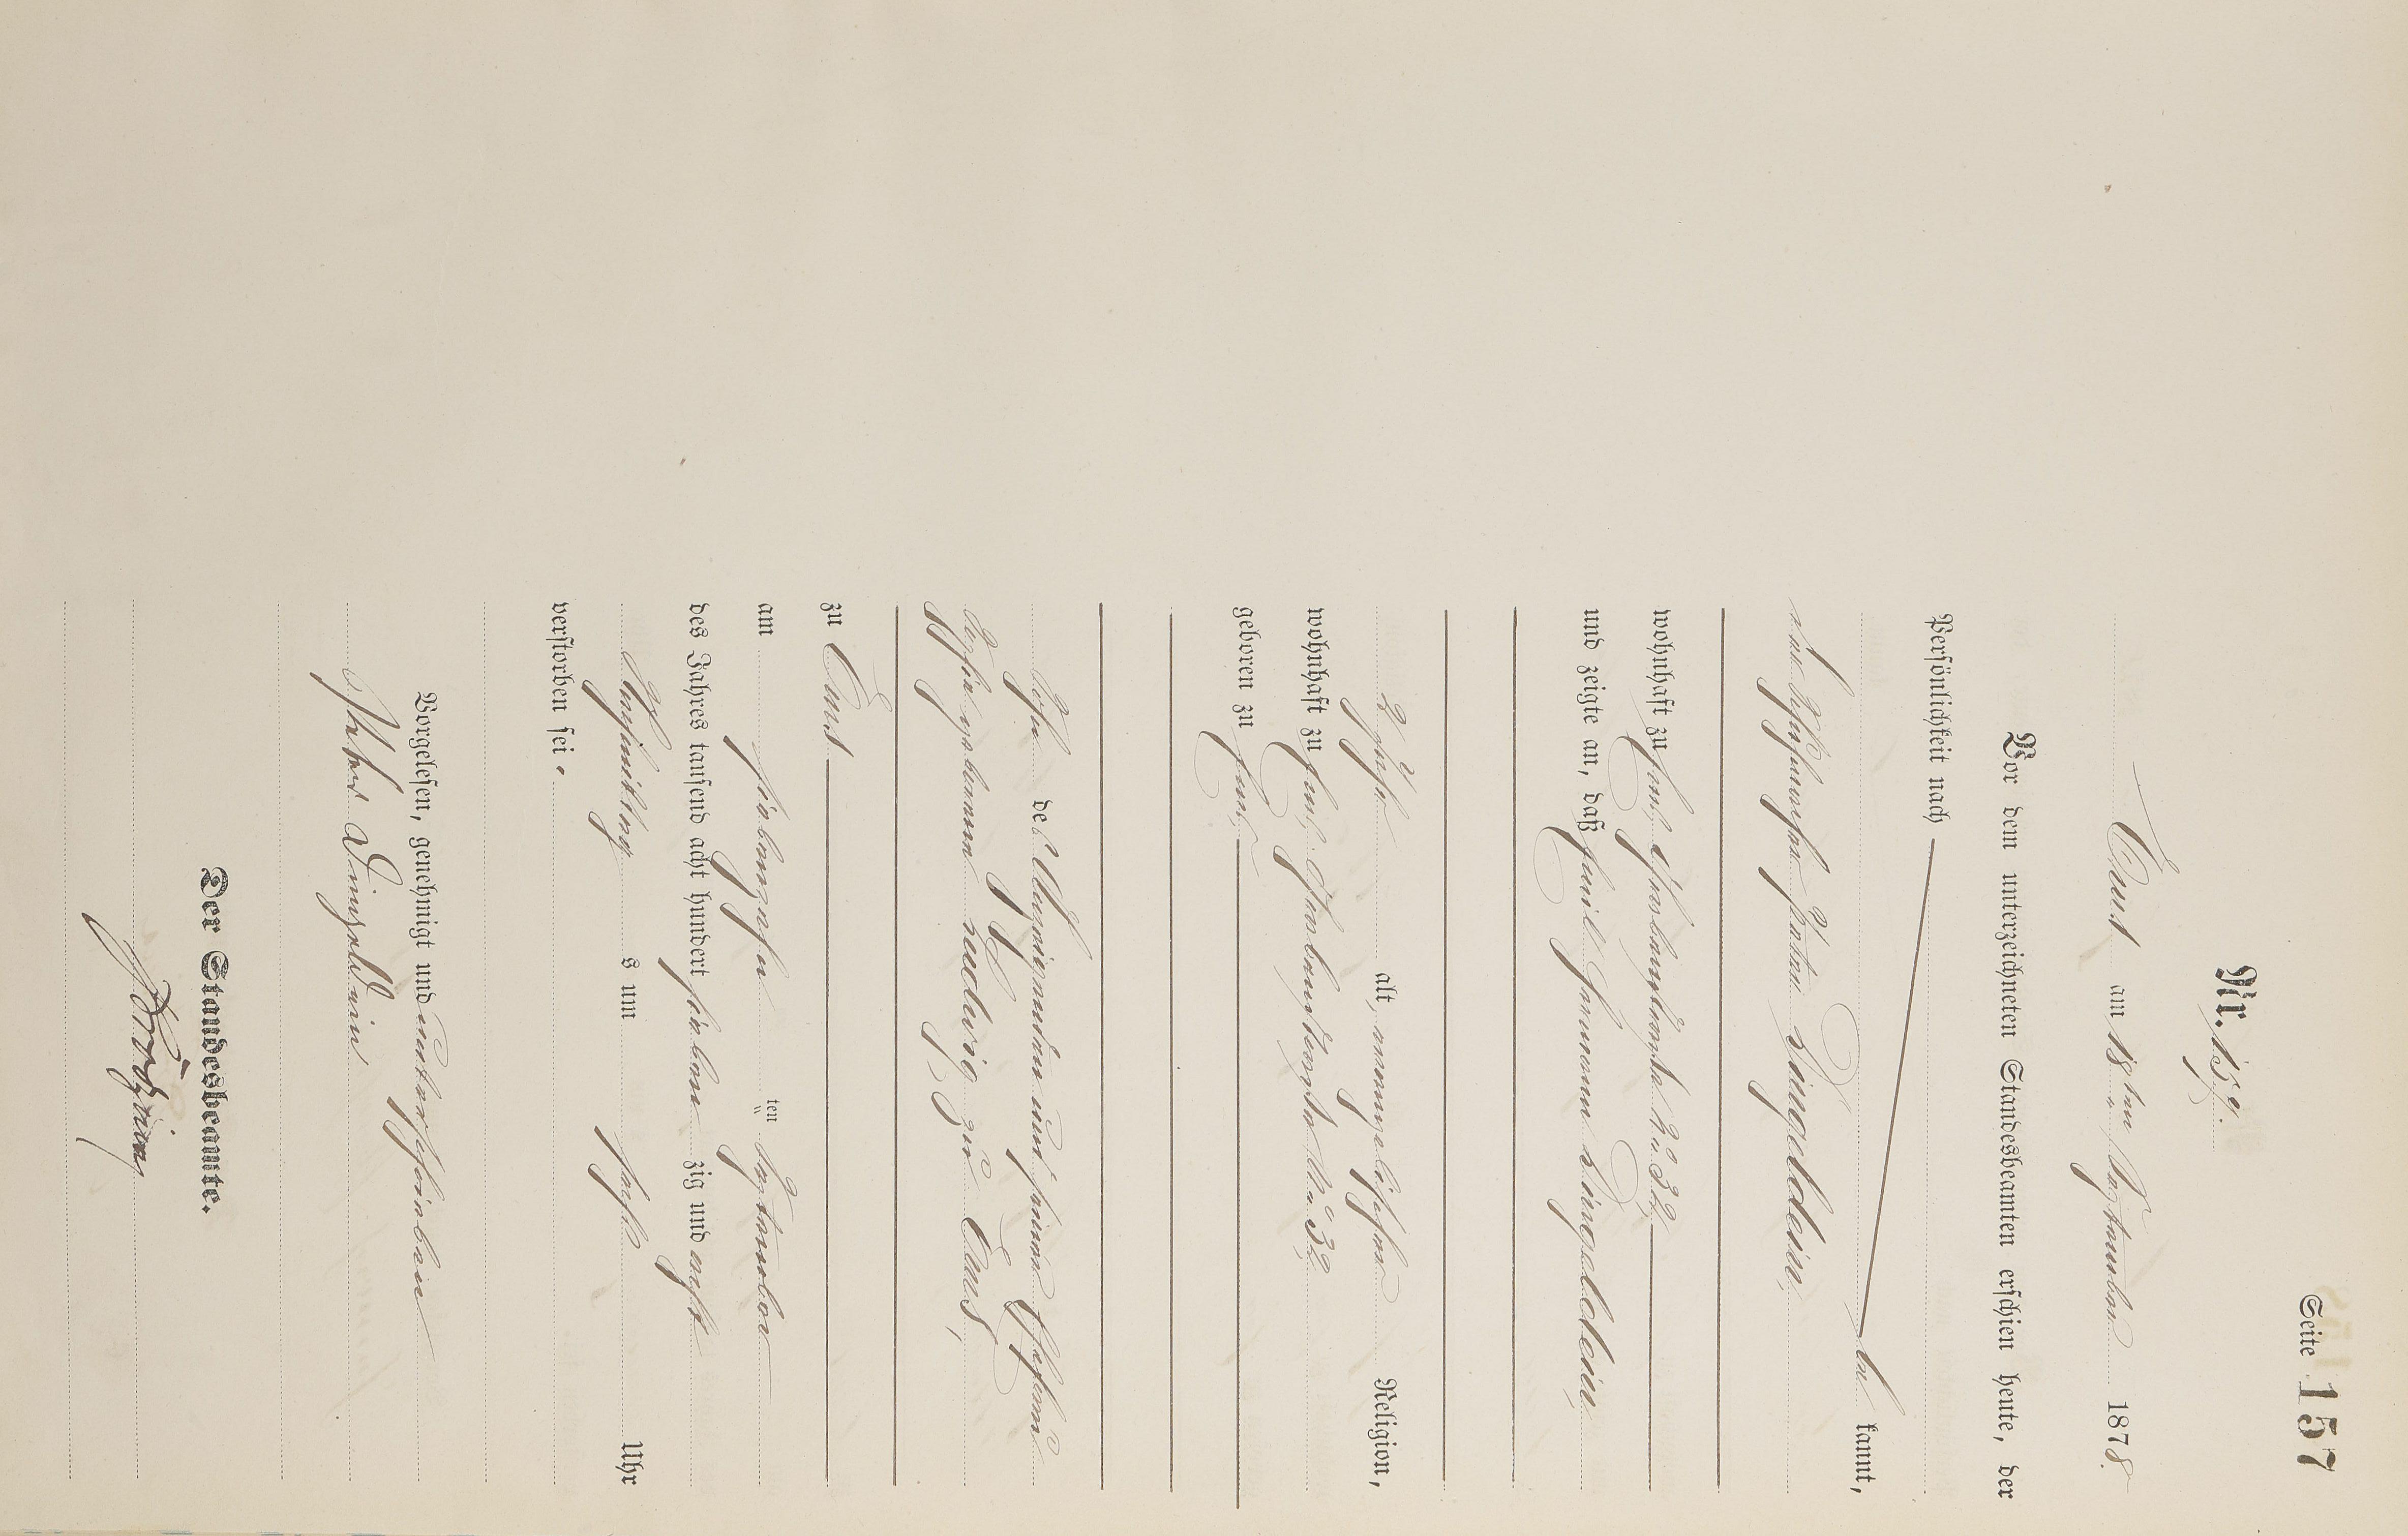 Seite 157
Nr. 157.
Ems am 18ten September 1878.
Vor dem unterzeichneten Standesbeamten erschien heute, der
Persönlichkeit nach
be kannt,
der Schuhmacher Peter Dingeldein,
wohnhaft zu Ems, No 32,
und zeigte an, daß Emil Hermann Dingeldein,
alt, evangelischer Religion,
wohnhaft zu Ems, No 32,
geboren zu Ems,
Sohn des Anzeigenden und seiner Ehefrau
geborenen Ludwig zu Ems,
zu Ems
am siebenzehn ten September
des Jahres tausend acht hundert sieben zig und acht
Nachmittag s um sechs Uhr
verstorben sei.
Vorgelesen, genehmigt und unterschrieben
Peter Dingeldein
Der Standesbeamte.